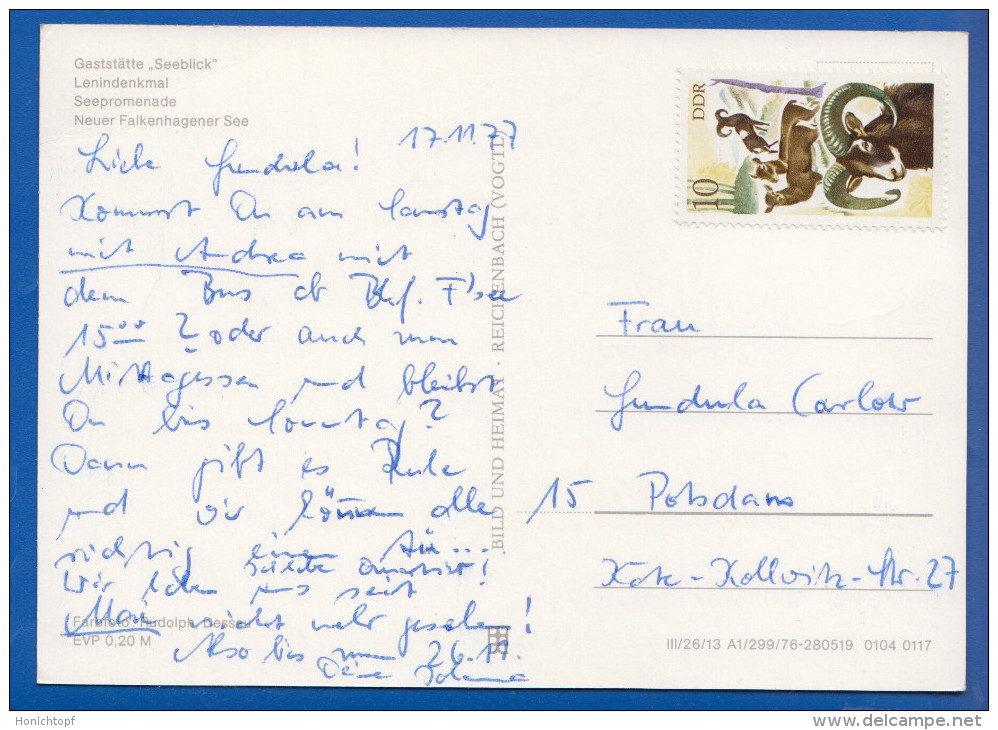 Gaststätte „Seeblick"
Lenindenkmal
Seepromenade
Neuer Falkenhagener See
17.11.77
Liebe Gundula!
Kommst Du am Samstag
mit Andrea mit
dem Bus ab Bhf. F'see
15⁰⁰ ? oder auch zum
Mittagessen und bleibst
Du bis Sonntag?
Dann gibt es Ruhe
und wir können alle
richtig einen
Wir haben uns seit
Mai nicht mehr gesehen!
Also bis zum 26.11.
Deine
Farbfoto: Rudolph, Dessau
EVP 0,20 M
BILD UND HEIMAT · REICHENBACH (VOGTL)
DDR
10
Frau
Gundula Carlow
15 Potsdam
Käte-Kollwitz-Str. 27
III/26/13 A1/299/76-280519 0104 0117
Honichtopf
delcampe.net